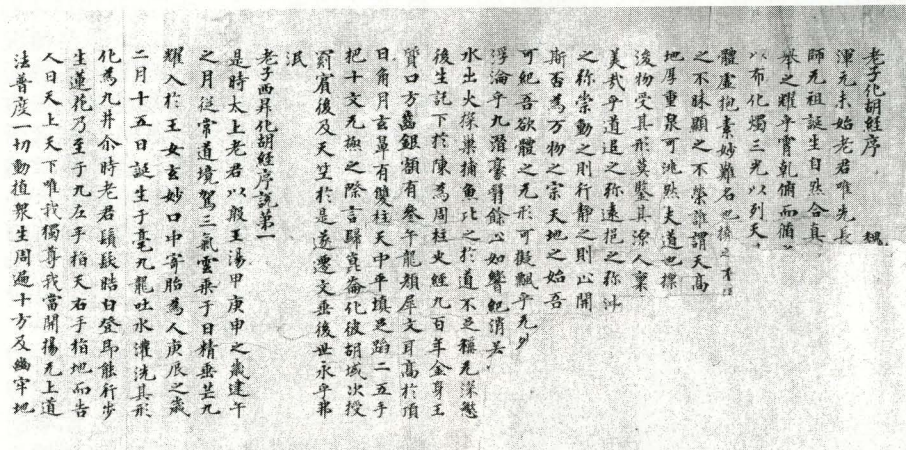 老子化胡經序 魏
渾元未始老君唯先長
師元祖誕生自然合真
舉之曜乎霄軋俯而循
以布化燭三光以列天
體虛抱素妙難名也
之不昧顯之不榮誰謂天高
地厚重泉可洮然夫道也標
後物受其形莫鑒其深人稟
美哉乎道退之称遠挹之称冲
之称常動之則行静之則止開
斯否為万物之宗天地之始吾
可紀吾欲體之无形可擬飄乎无
浮淪乎九潛豪翳餘么如響 消若
水出火探巢捕魚比之於道不足稱无深慜
後生託下於陳為周柱史經九百年金身玉
質口方齒銀額有叁午龍顏犀文耳高於頂
日角月玄鼻有雙柱天中平填足蹈二五手
把十文无極之際言歸崑崙化彼胡域次授
罽賓後及天竺於是遂遷文垂後世永乎弗
泯
老子西昇化胡經序說第一
是時太上老君以殷王湯甲庚申之歲建午
之月從常道境駕三氣雲乘于日精垂芒九
耀入於王女玄妙口中寄胎為人庚辰之歲
二月十五日誕生于亳九龍吐水灌洗其形
化為九井尒時老君鬚髮皓白登即能行步
生蓮花乃至于九左手指天右手指地而告
人曰天上天下唯我獨尊我當開揚无上道
法普度一切動植眾生周遍十方及幽牢地